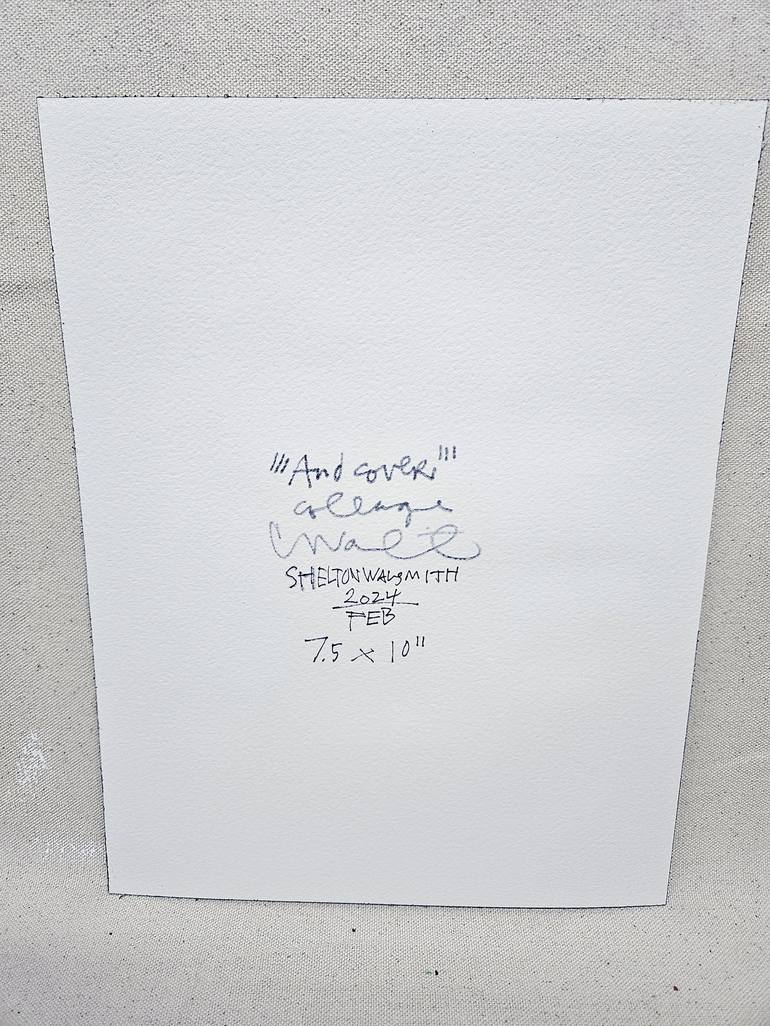 "'And cover'"
collage
SHELTON WALSMITH
2024
FEB
7.5 x 10"